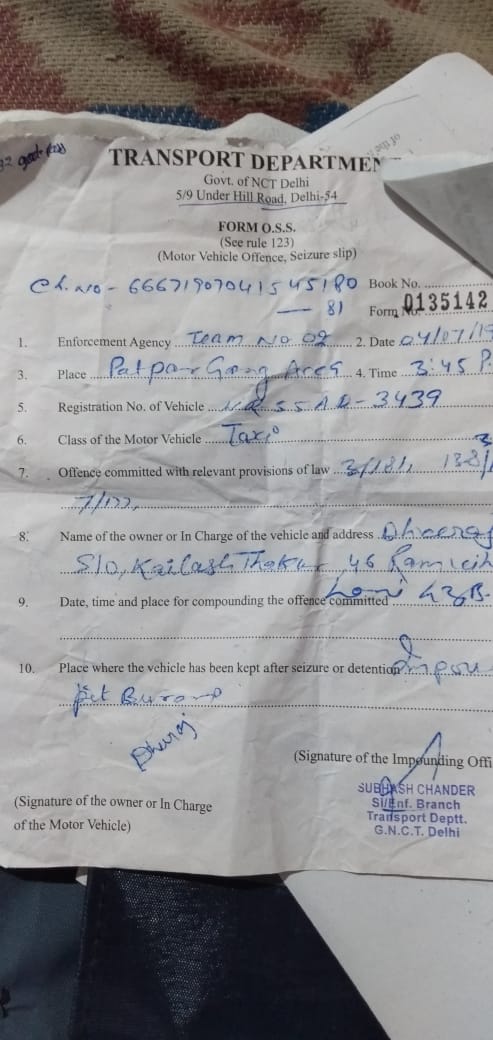 TRANSPORT DEPARTMEN
Govt. of NCT Delhi
5/9 Under Hill Road, Delhi-54
FORM O.S.S.
(See rule 123)
(Motor Vehicle Offence, Seizure slip)
Ch. No - 66671907041545180 Book No.
81 Form No. 0135142
1. Enforcement Agency Team No 02 2. Date 04/07/19
3. Place Patpar Ganj Area 4. Time 3:45 P.
5. Registration No. of Vehicle 55AD-3439
6. Class of the Motor Vehicle Taxi
7. Offence committed with relevant provisions of law 3/181,
7/177,
8. Name of the owner or In Charge of the vehicle and address Dheeraj
S/O, Kailash Thakur 46 Ram
9. Date, time and place for compounding the offence committed Loni GZB.
10. Place where the vehicle has been kept after seizure or detention Impou
Pit Burari
Dhiraj
(Signature of the Impounding Offi
SUBHASH CHANDER
SI/Enf. Branch
Transport Deptt.
G.N.C.T. Delhi
(Signature of the owner or In Charge
of the Motor Vehicle)